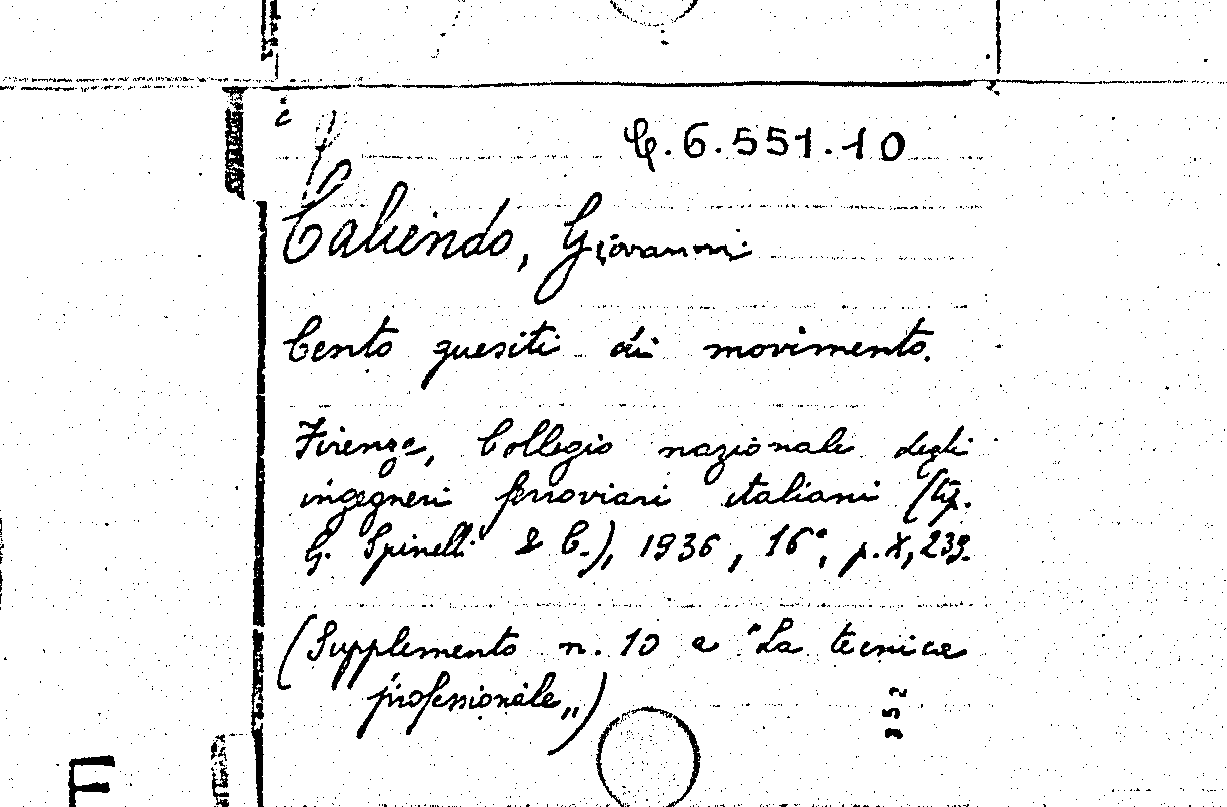 C.6.551.10
Caliendo, Giovanni
Cento quesiti di movimento.
Firenze, Collegio nazionale degli
ingegneri ferroviari italiani (tip.
G. Spinelli & C.), 1936, 16°, p. X, 239.
(Supplemento n. 10 a "La tecnica
professionale„)
352
E